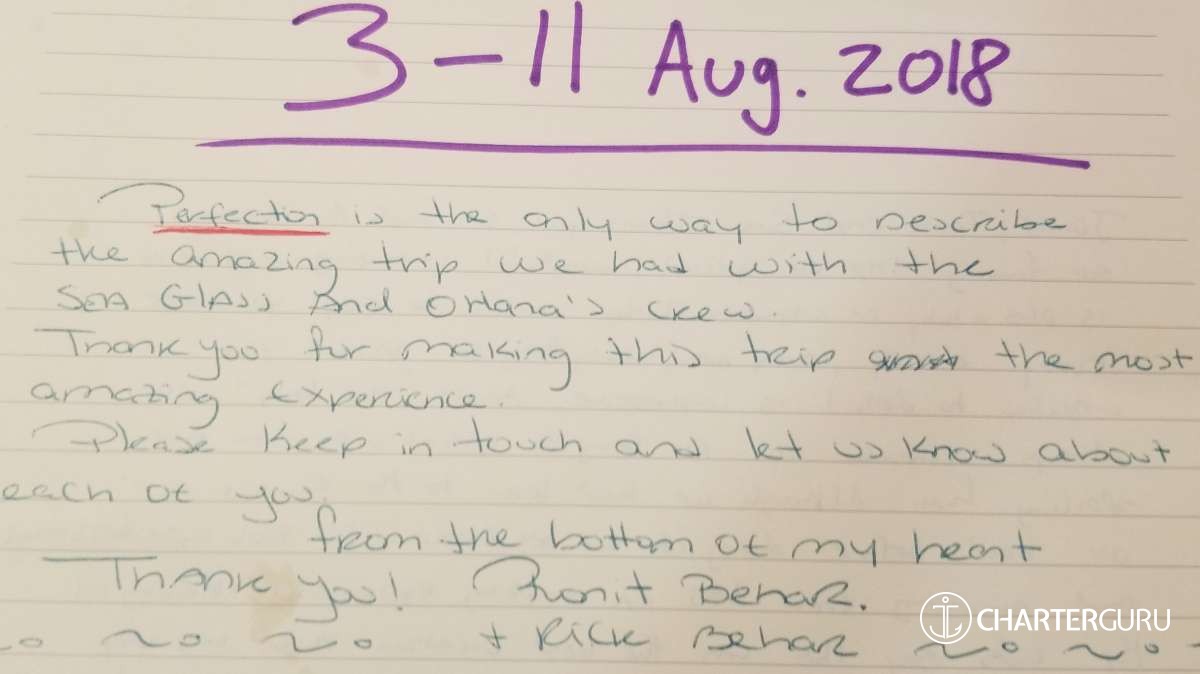 3-11 Aug. 2018
Perfection is the only way to describe
the amazing trip we had with the
SEA GLASS And Ohana's crew.
Thank you for making this trip the most
amazing experience.
Please keep in touch and let us know about
each of you.
from the bottom of my heart
THANK you! Ronit Behar.
+ Rick Behar
CHARTERGURU